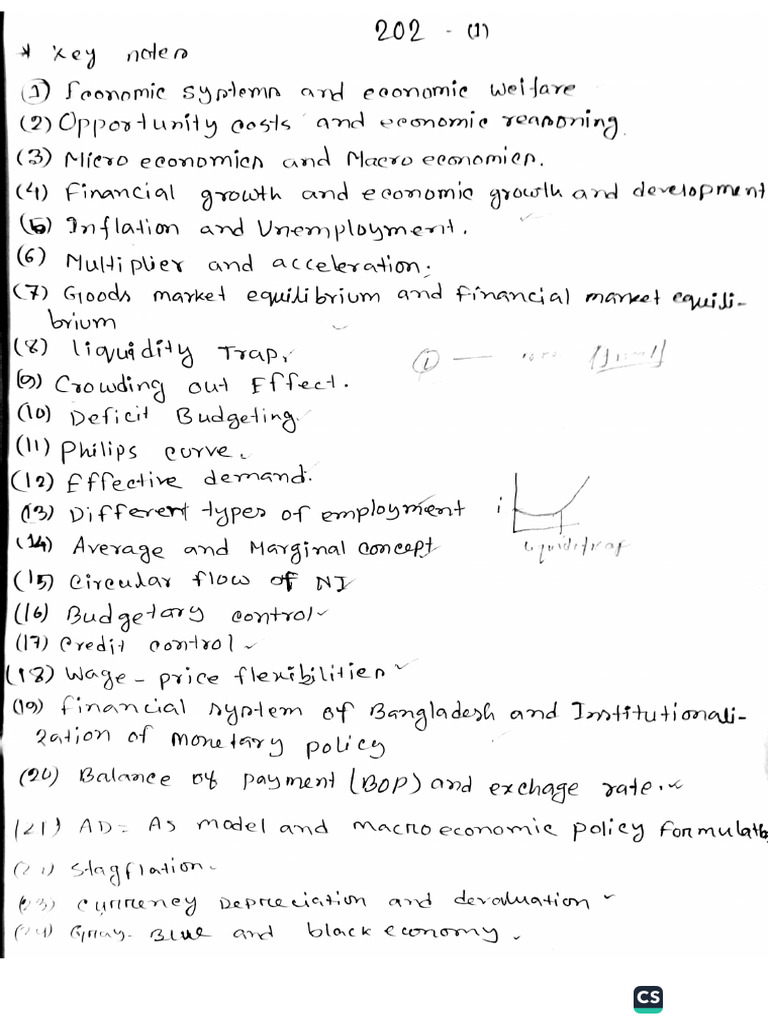 202 - (1)
* Key notes
(1) Economic systems and economic welfare
(2) Opportunity costs and economic reasoning.
(3) Micro economics and Macro economics.
(4) Financial growth and economic growth and development
(5) Inflation and Unemployment.
(6) Multiplier and acceleration.
(7) Goods market equilibrium and financial market equili-
brium
(8) liquidity Trap,
(9) Crowding out Effect.
(10) Deficit Budgeting.
(11) Philips curve.
(12) Effective demand.
(13) Different types of employment
i
(14) Average and Marginal concept
(15) Circular flow of NI
(16) Budgetary control
(17) Credit control
(18) Wage - price flexibilities
(19) Financial system of Bangladesh and Institutionali-
zation of monetary policy
(20) Balance of payment (BOP) and exchage rate.
(21) AD = AS model and macroeconomic policy formulatio
Stagflation.
(23) Currency Depreciation and devaluation
(24) Gray- Blue and black economy.
CS